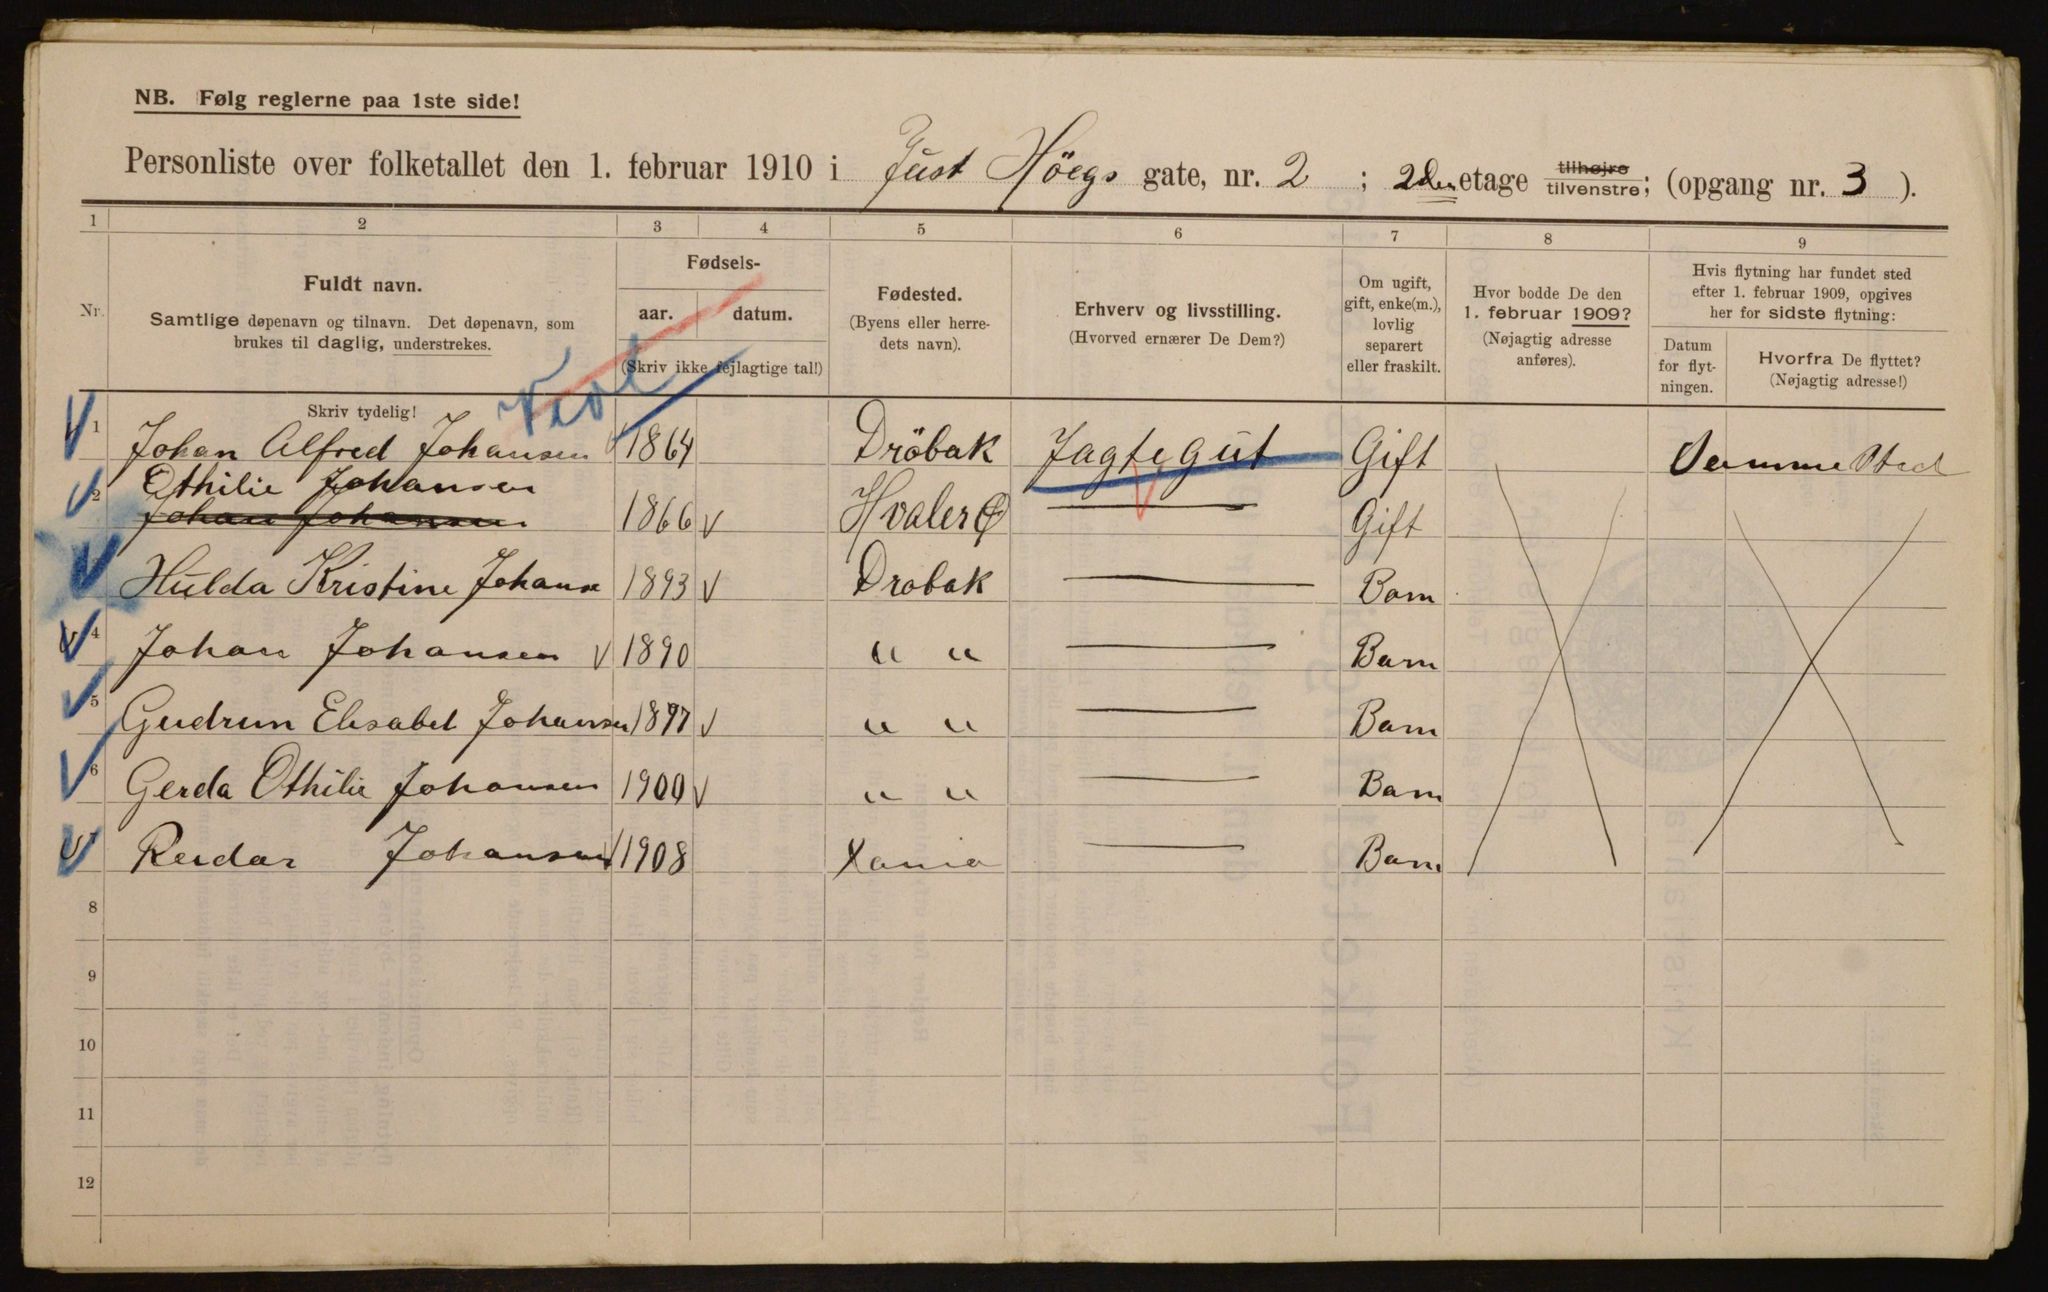 NB. Følg reglerne paa 1ste side!
Personliste over folketallet den 1. februar 1910 i Just Höegs gate, nr. 2 ; 2den etage tilhøjre tilvenstre; (opgang nr. 3 ).
1 2 3 4 5 6 7 8 9
Nr.
Fuldt navn.
Samtlige døpenavn og tilnavn. Det døpenavn, som
brukes til daglig, understrekes.
Skriv tydelig!
Fødsels-
aar. datum.
(Skriv ikke fejlagtige tal!)
Fødested.
(Byens eller herre-
dets navn).
Erhverv og livsstilling.
(Hvorved ernærer De Dem?)
Om ugift,
gift, enke(m.),
lovlig
separert
eller fraskilt.
Hvor bodde De den
1. februar 1909?
(Nøjagtig adresse
anføres).
Hvis flytning har fundet sted
efter 1. februar 1909, opgives
her for sidste flytning:
Datum
for flyt-
ningen.
Hvorfra De flyttet?
(Nøjagtig adresse!)
1 Johan Alfred Johansen 1864 Dröbak Jagtegut Gift Samme Sted
2 Othilie Johansen
Johan Johansen 1866 Hvaler Ø Gift
Hulda Kristine Johanse 1893 Drobak Barn
4 Johan Johansen 1890 " " Barn
5 Gudrun Elisabet Johansen 1897 " " Barn
6 Gerda Othilie Johansen 1900 " " Barn
Reidar Johansen 1908 Xania Barn
8
9
10
11
12